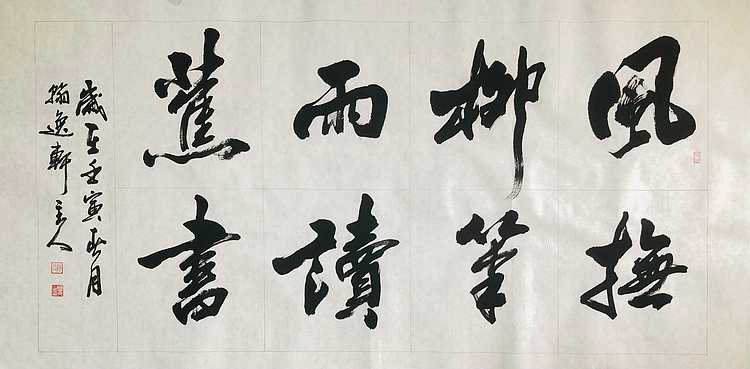 風撫
柳筆
雨讀
蕉書
歲在壬寅春月
翰逸軒主人